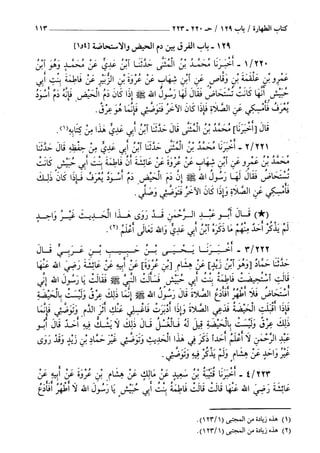 كتاب الطهارة / باب ١٢٩ / حـ ٢٢٠ - ٢٢٣ ١١٣
١٢٩ - باب الفرق بين دم الحيض والاستحاضة [١٥٩]
١/٢٢٠ - أَخْبَرَنَا مُحَمَّدُ بْنُ الْمُثَنَّى حَدَّثَنَا ابْنُ أَبِي عَدِيٍّ عَنْ مُحَمَّدٍ وَهُوَ ابْنُ
عَمْرِو بْنِ عَلْقَمَةَ بْنِ وَقَّاصٍ عَنِ ابْنِ شِهَابٍ عَنْ عُرْوَةَ بْنِ الزُّبَيْرِ عَنْ فَاطِمَةَ بِنْتِ أَبِي
حُبَيْشٍ أَنَّهَا كَانَتْ تُسْتَحَاضُ فَقَالَ لَهَا رَسُولُ اللهِ ﷺ إِذَا كَانَ دَمُ الْحَيْضِ فَإِنَّهُ دَمٌ أَسْوَدُ
يُعْرَفُ فَأَمْسِكِي عَنِ الصَّلَاةِ فَإِذَا كَانَ الْآخَرُ فَتَوَضَّئِي فَإِنَّمَا هُوَ عِرْقٌ.
قَالَ [أَخْبَرَنَا] مُحَمَّدُ بْنُ الْمُثَنَّى قَالَ حَدَّثَنَا ابْنُ أَبِي عَدِيٍّ هَذَا مِنْ كِتَابِهِ(١).
٢/٢٢١ - أَخْبَرَنَا مُحَمَّدُ بْنُ الْمُثَنَّى حَدَّثَنَا ابْنُ أَبِي عَدِيٍّ مِنْ حِفْظِهِ قَالَ حَدَّثَنَا
مُحَمَّدُ بْنُ عَمْرٍو عَنِ ابْنِ شِهَابٍ عَنْ عُرْوَةَ عَنْ عَائِشَةَ أَنَّ فَاطِمَةَ بِنْتَ أَبِي حُبَيْشٍ كَانَتْ
تُسْتَحَاضُ فَقَالَ لَهَا رَسُولُ اللهِ ﷺ إِنَّ دَمَ الْحَيْضِ دَمٌ أَسْوَدُ يُعْرَفُ فَإِذَا كَانَ ذَلِكَ
فَأَمْسِكِي عَنِ الصَّلَاةِ وَإِذَا كَانَ الْآخَرُ فَتَوَضَّئِي وَصَلِّي.
(★) قَالَ أَبُو عَبْدِ الرَّحْمَنِ قَدْ رَوَى هَذَا الْحَدِيثَ غَيْرُ وَاحِدٍ
لَمْ يَذْكُرْ أَحَدٌ مِنْهُمْ مَا ذَكَرَهُ ابْنُ أَبِي عَدِيٍّ وَاللهُ تَعَالَى أَعْلَمُ(٢).
٣/٢٢٢ - أَخْبَرَنَا يَحْيَى بْنُ حَبِيبِ بْنِ عَرَبِيٍّ قَالَ
حَدَّثَنَا حَمَّادٌ [وَهُوَ ابْنُ زَيْدٍ] عَنْ هِشَامِ [بْنِ عُرْوَةَ] عَنْ أَبِيهِ عَنْ عَائِشَةَ رَضِيَ اللهُ عَنْهَا
قَالَتِ اسْتُحِيضَتْ فَاطِمَةُ بِنْتُ أَبِي حُبَيْشٍ فَسَأَلَتِ النَّبِيَّ ﷺ فَقَالَتْ يَا رَسُولَ اللهِ إِنِّي
أُسْتَحَاضُ فَلَا أَطْهُرُ أَفَأَدَعُ الصَّلَاةَ قَالَ رَسُولُ اللهِ ﷺ إِنَّمَا ذَلِكَ عِرْقٌ وَلَيْسَتْ بِالْحَيْضَةِ
فَإِذَا أَقْبَلَتِ الْحَيْضَةُ فَدَعِي الصَّلَاةَ وَإِذَا أَدْبَرَتْ فَاغْسِلِي عَنْكِ أَثَرَ الدَّمِ وَتَوَضَّئِي فَإِنَّمَا
ذَلِكَ عِرْقٌ وَلَيْسَتْ بِالْحَيْضَةِ قِيلَ لَهُ فَالْغُسْلُ قَالَ ذَلِكَ لَا يَشُكُّ فِيهِ أَحَدٌ قَالَ أَبُو
عَبْدِ الرَّحْمَنِ لَا أَعْلَمُ أَحَدًا ذَكَرَ فِي هَذَا الْحَدِيثِ وَتَوَضَّئِي غَيْرَ حَمَّادِ بْنِ زَيْدٍ وَقَدْ رَوَى
غَيْرُ وَاحِدٍ عَنْ هِشَامٍ وَلَمْ يَذْكُرْ فِيهِ وَتَوَضَّئِي.
٤/٢٢٣ - أَخْبَرَنَا قُتَيْبَةُ بْنُ سَعِيدٍ عَنْ مَالِكٍ عَنْ هِشَامِ بْنِ عُرْوَةَ عَنْ أَبِيهِ عَنْ
عَائِشَةَ رَضِيَ اللهُ عَنْهَا قَالَتْ قَالَتْ فَاطِمَةُ بِنْتُ أَبِي حُبَيْشٍ يَا رَسُولَ اللهِ لَا أَطْهُرُ أَفَأَدَعُ
(١) هذه زيادة من المجتبى (١٢٣/١).
(٢) هذه زيادة من المجتبى (١٢٣/١).